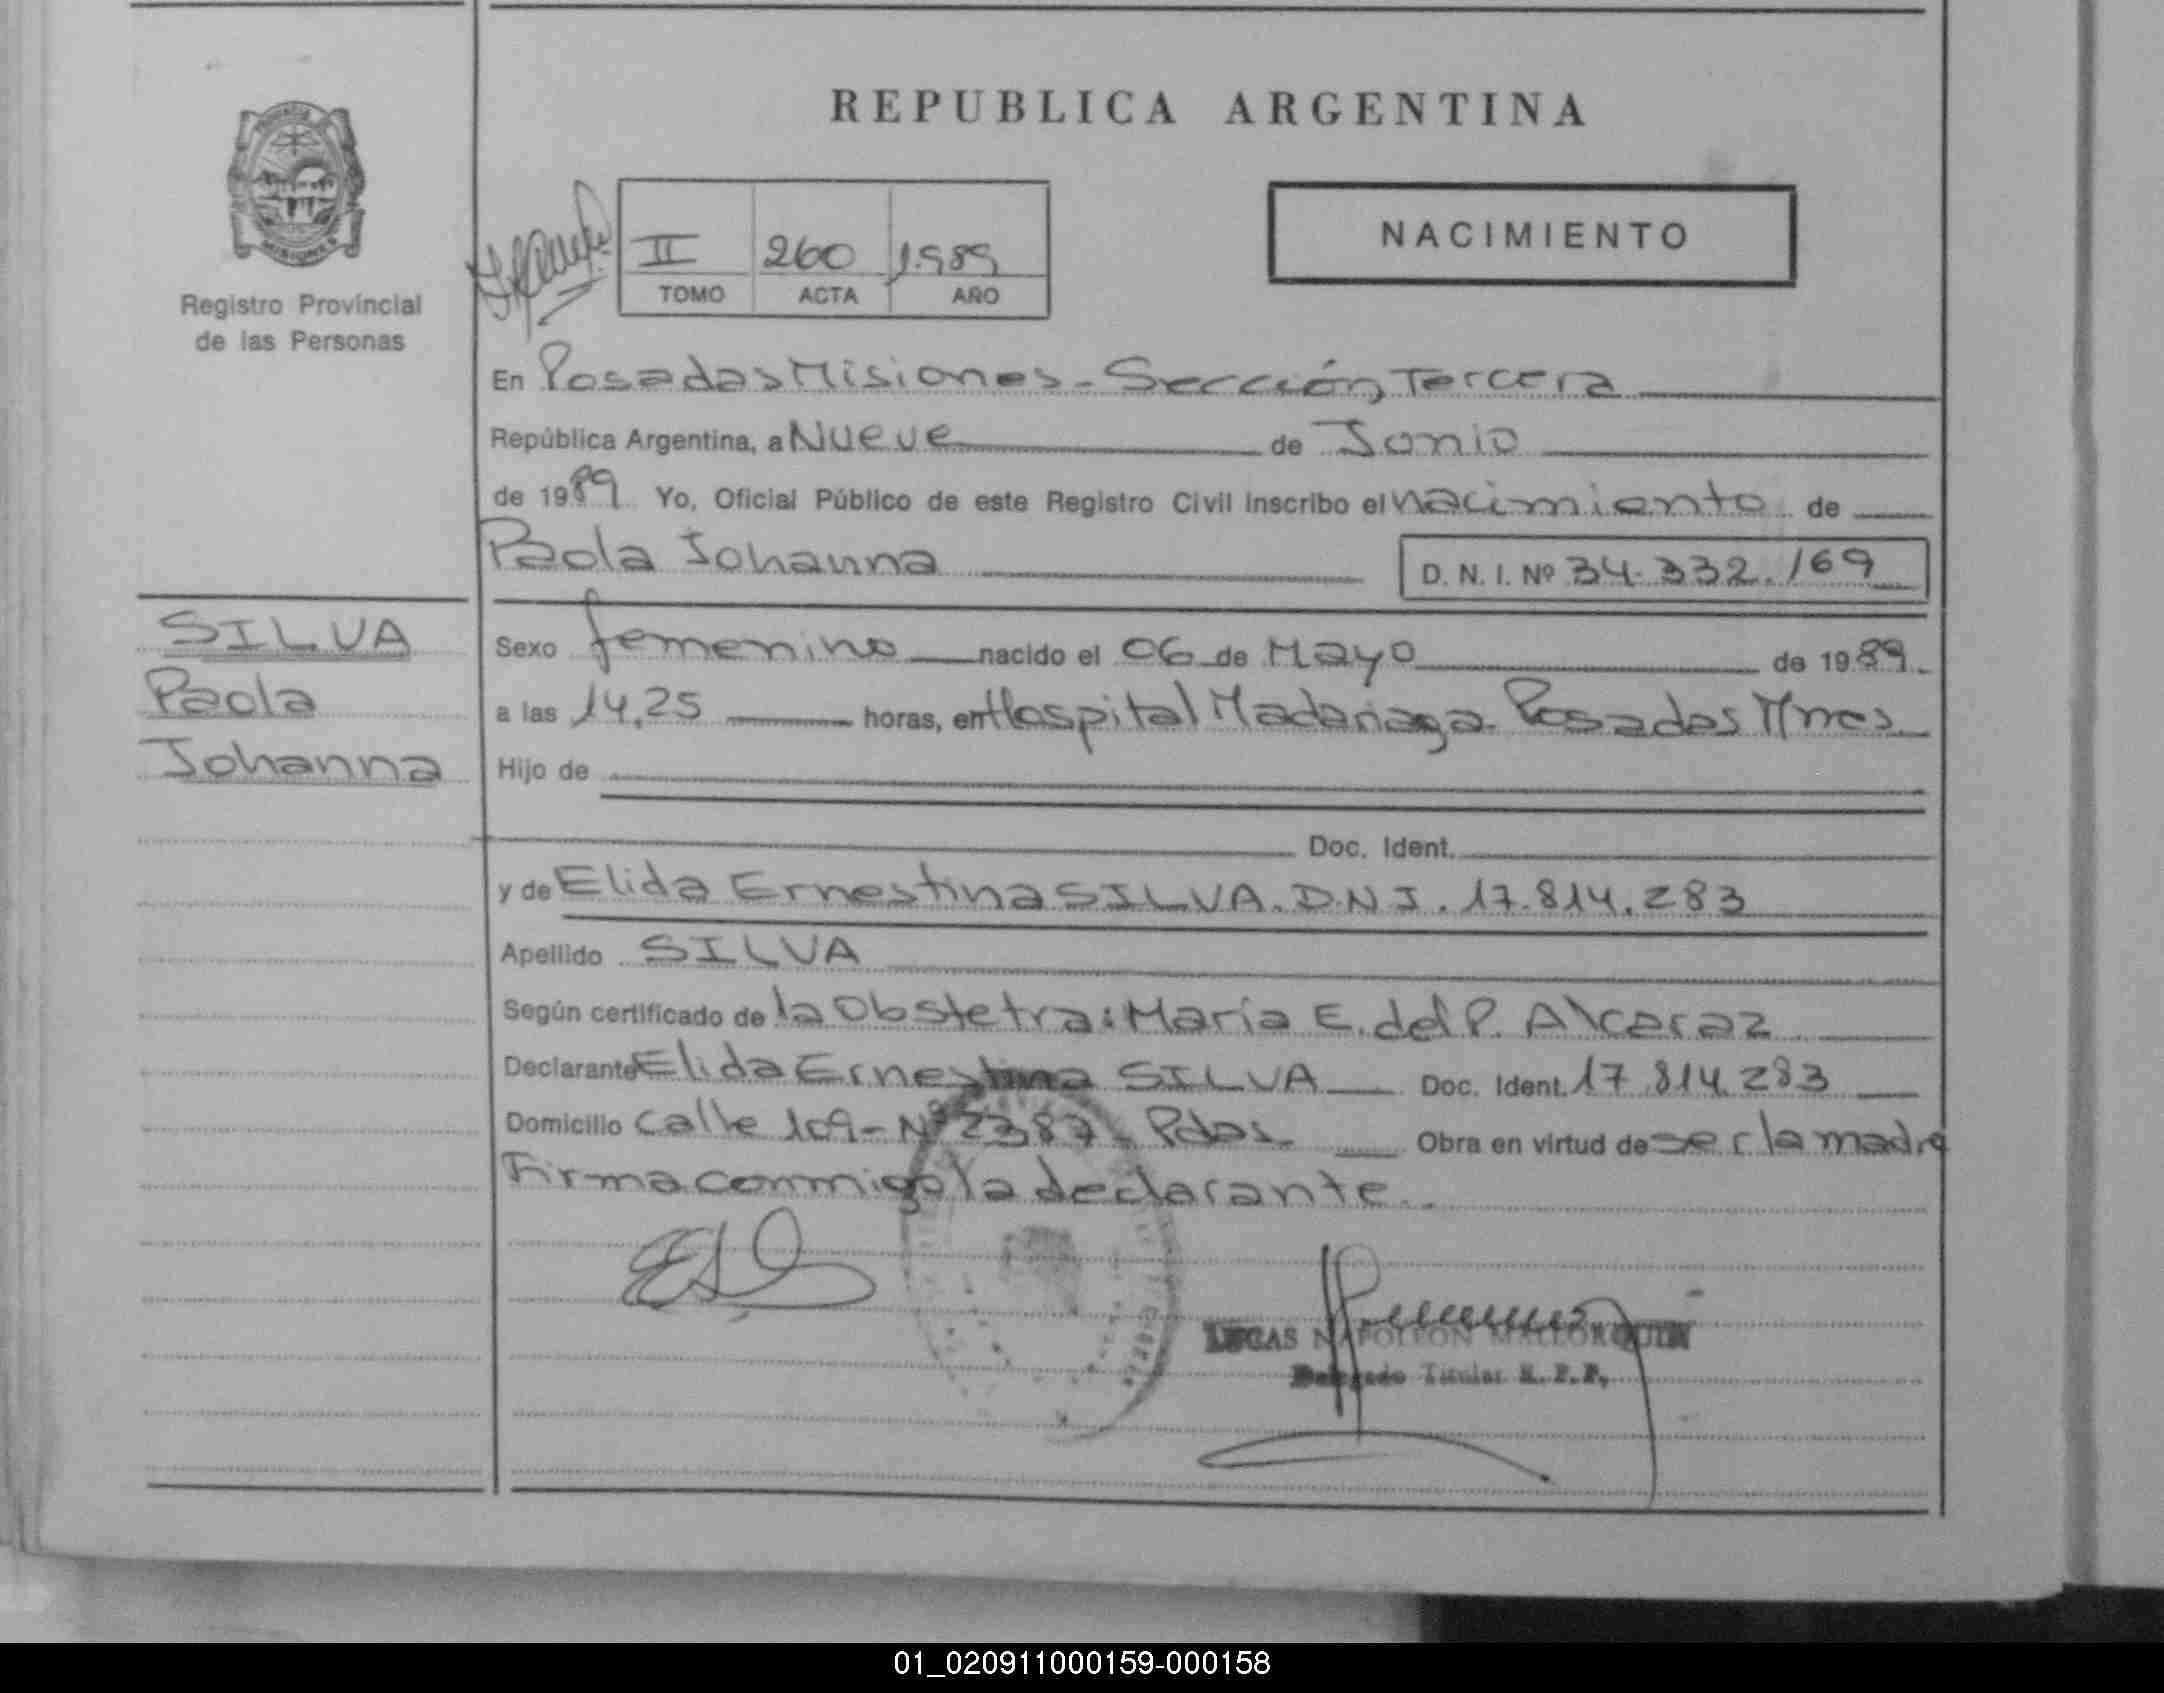 REPUBLICA ARGENTINA
NACIMIENTO
Registro Provincial
de las Personas
II 260 1989
TOMO ACTA AÑO
En Posadas Misiones - Sección Tercera
República Argentina, a Nueve de Junio
de 1989 Yo, Oficial Público de este Registro Civil inscribo el nacimiento de
Paola Johanna D. N. I. Nº 34.332.169
SILVA
Paola
Johanna
Sexo femenino nacido el 06 de Mayo de 1989.
a las 14,25 horas, en Hospital Madariaga. Posadas Mnes.
Hijo de
Doc. Ident.
y de Elida Ernestina SILVA. D.N.I. 17.814.283
Apellido SILVA
Según certificado de la Obstetra: María E. del P. Alcaraz
Declarante Elida Ernestina SILVA Doc. Ident. 17.814.283
Domicilio Calle 109 - Nº 2387 - Pdas. Obra en virtud de ser la madre
Firma conmigo la declarante.
LUCAS NAPOLEON MALLORQUIN
Delegado Titular R. P. P.
01_020911000159-000158